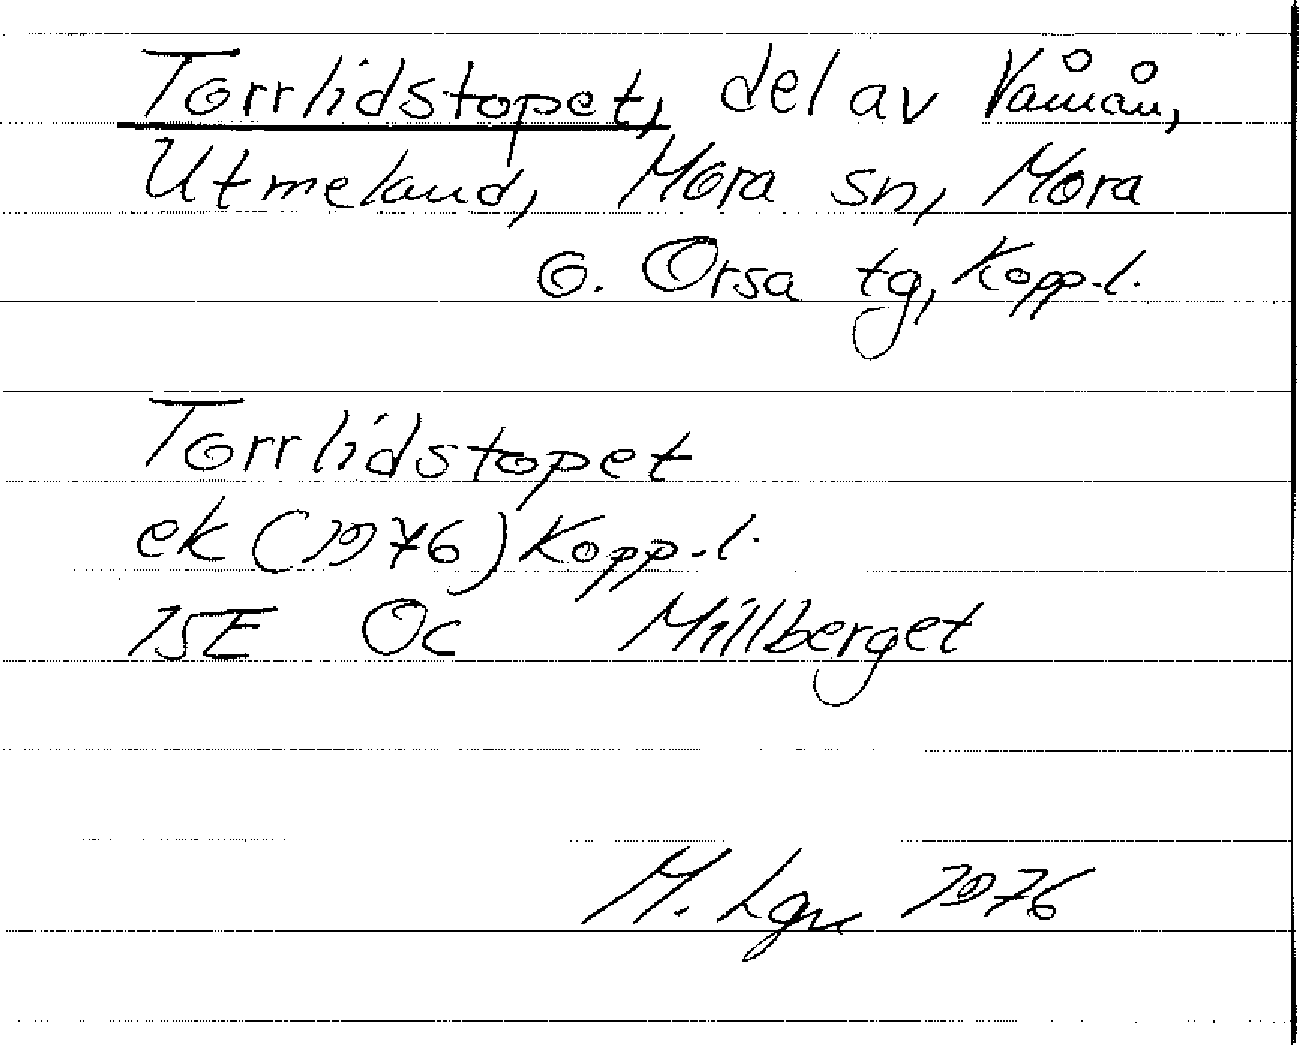 Torrlidstopet, del av Våmån,
Utmeland, Mora sn, Mora
o. Orsa tg, Kopp.l.
Torrlidstopet
ek (1976) Kopp.l.
15E Oc Millberget
M. Lgn 1976